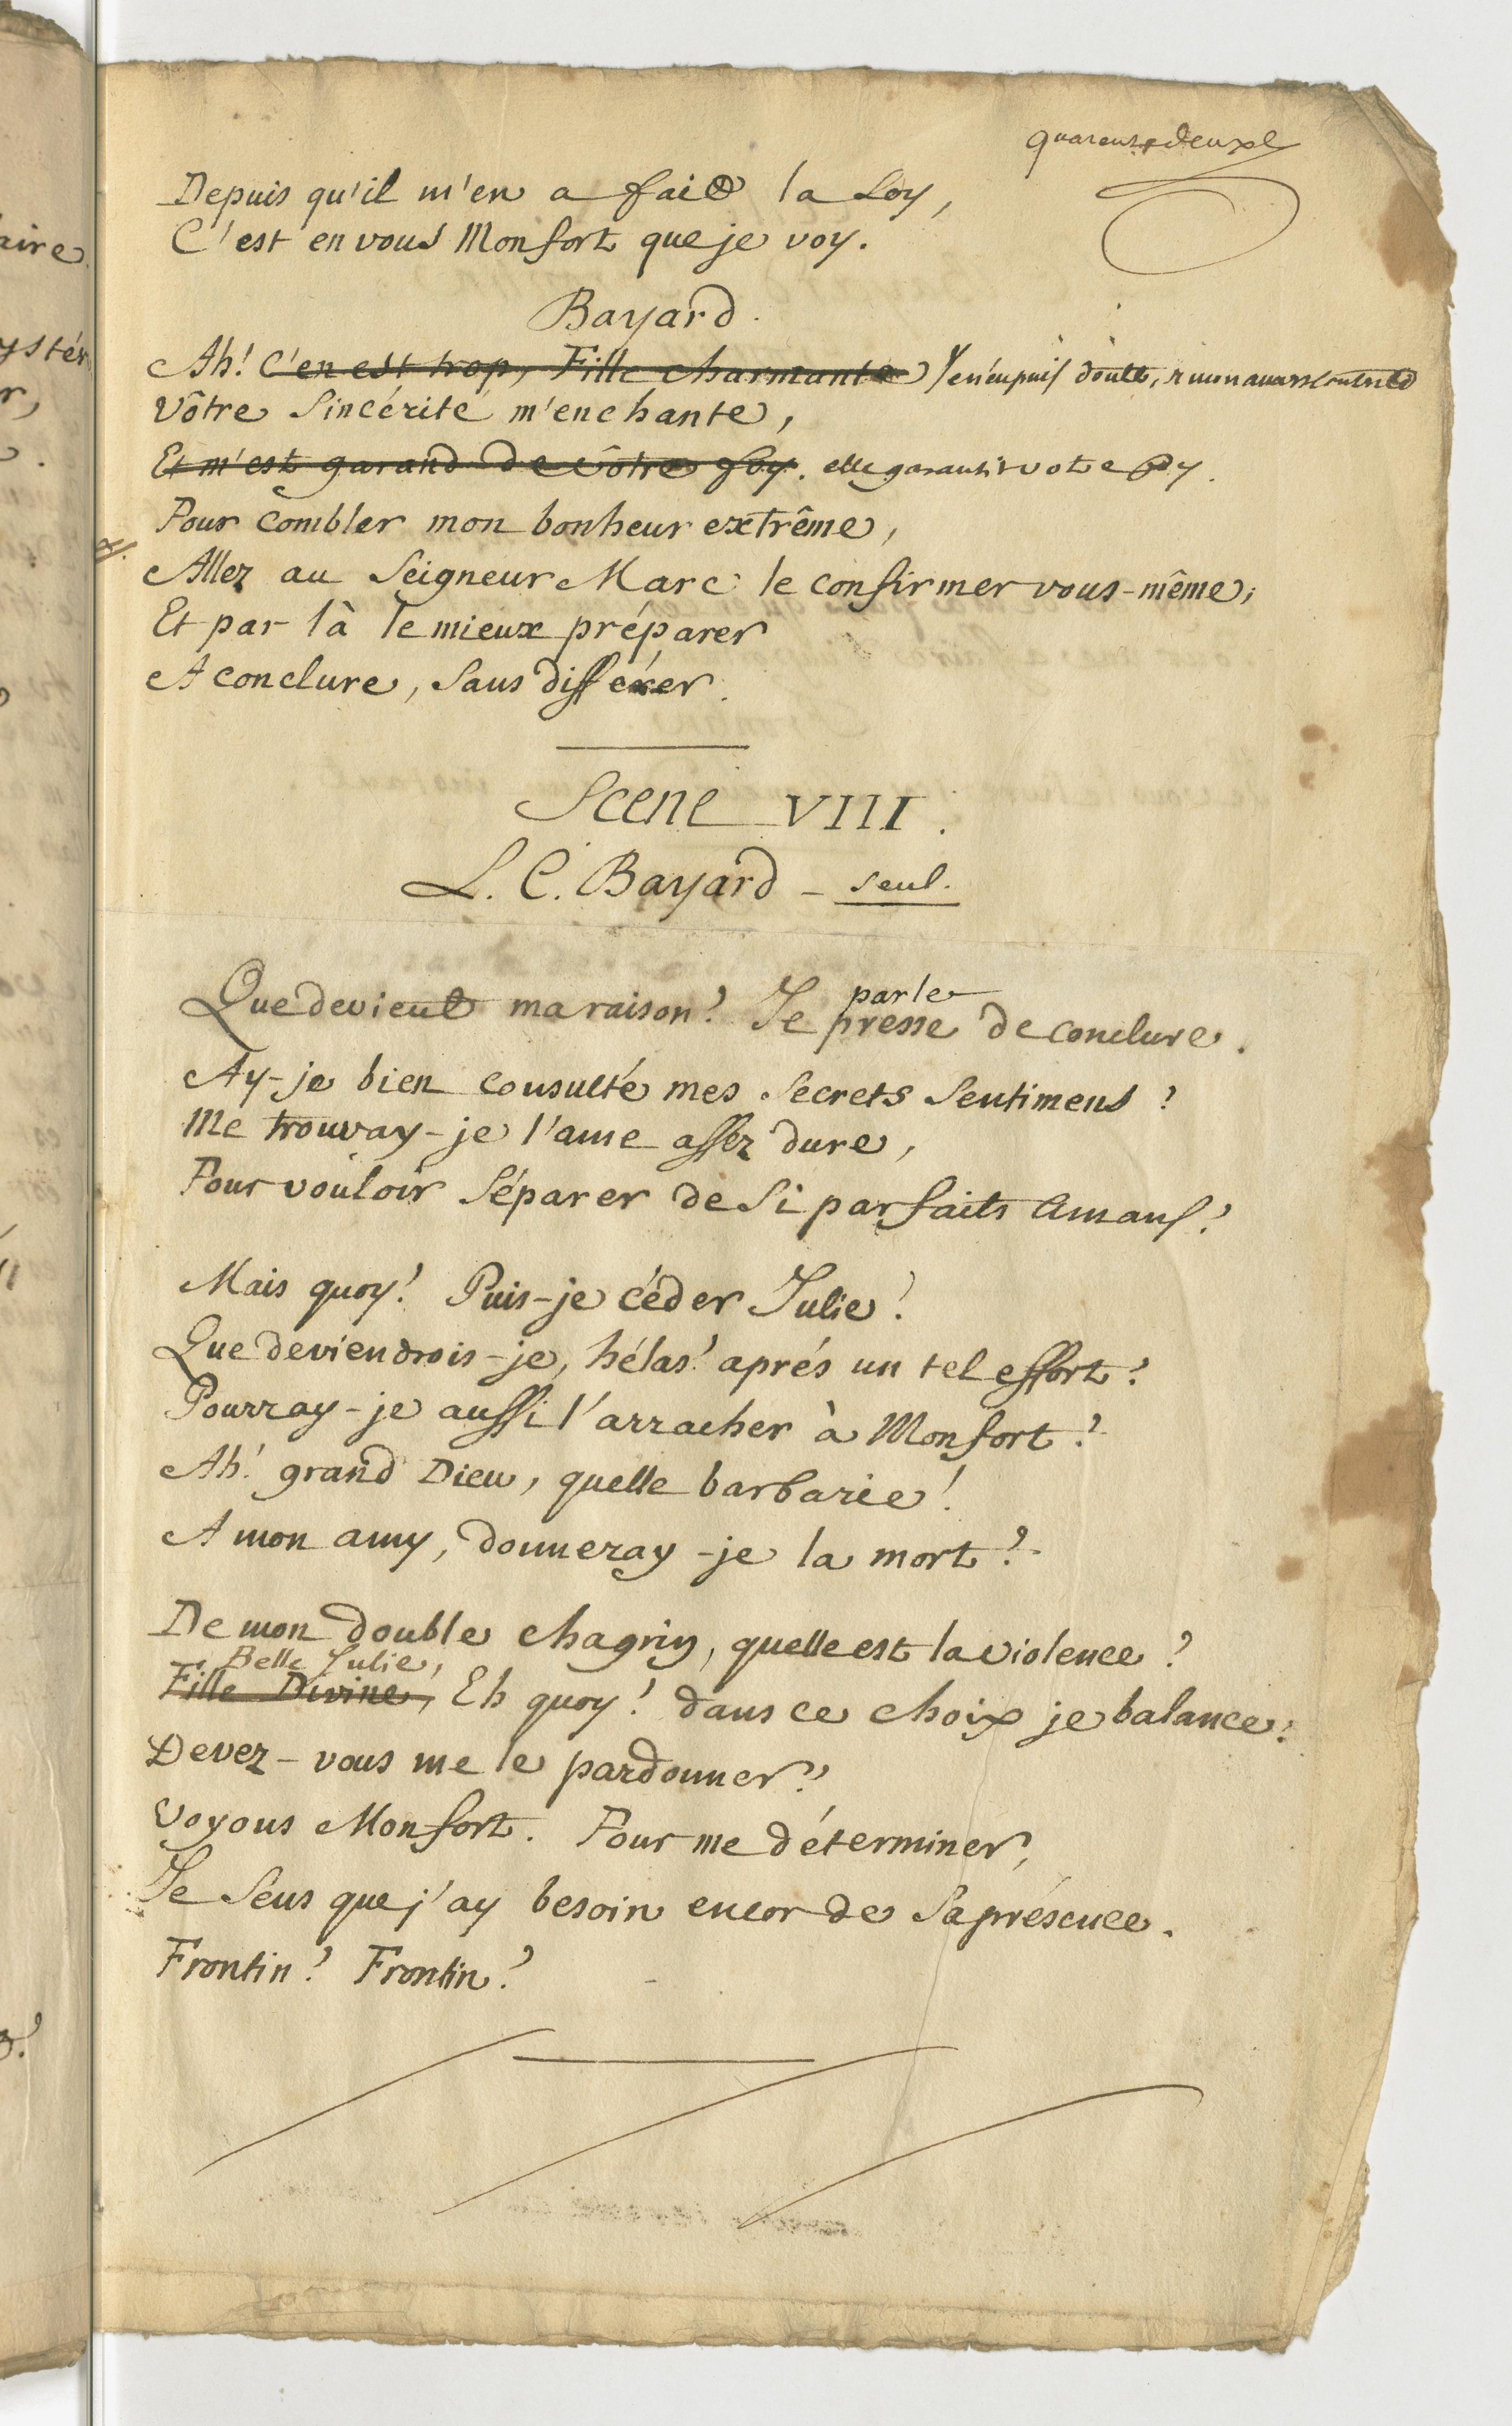 quarente deuxe
Depuis qu'il m'en a fait la Loy,
C'est en vous Monfort que je voy.
Bayard.
Ah! C'en est trop, Fille charmante je n'en puis douter, mon ame est contente
Vôtre Sincérité m'enchante,
Et m'est garand de Vôtre foy. elle garantit vote foy.
Pour combler mon bonheur extrême,
Allez au Seigneur Marc le confirmer vous-même;
Et par là le mieux préparer
A conclure, Sans différer.
Scene VIII.
L. C. Bayard - seul.
parle
Que devient ma raison? Je presse de conclure.
Ay-je bien consulté mes Secrets Sentimens?
Me trouvay-je l'ame assez dure,
Pour vouloir Séparer de Si parfaits Amans?
Mais quoy! Puis-je céder Julie!
Que deviendrois-je, hélas! aprés un tel effort?
Pourray-je aussi l'arracher à Monfort?
Ah! grand Dieu, quelle barbarie!
A mon amy, donneray-je la mort?
De mon double chagrin, quelle est la violence?
Belle Julie,
Fille Divine, Eh quoy! dans ce choix je balance!
Devez-vous me le pardonner?
Voyons Monfort. Pour me déterminer,
Je Sens que j'ay besoin encor de Sa présence.
Frontin? Frontin?